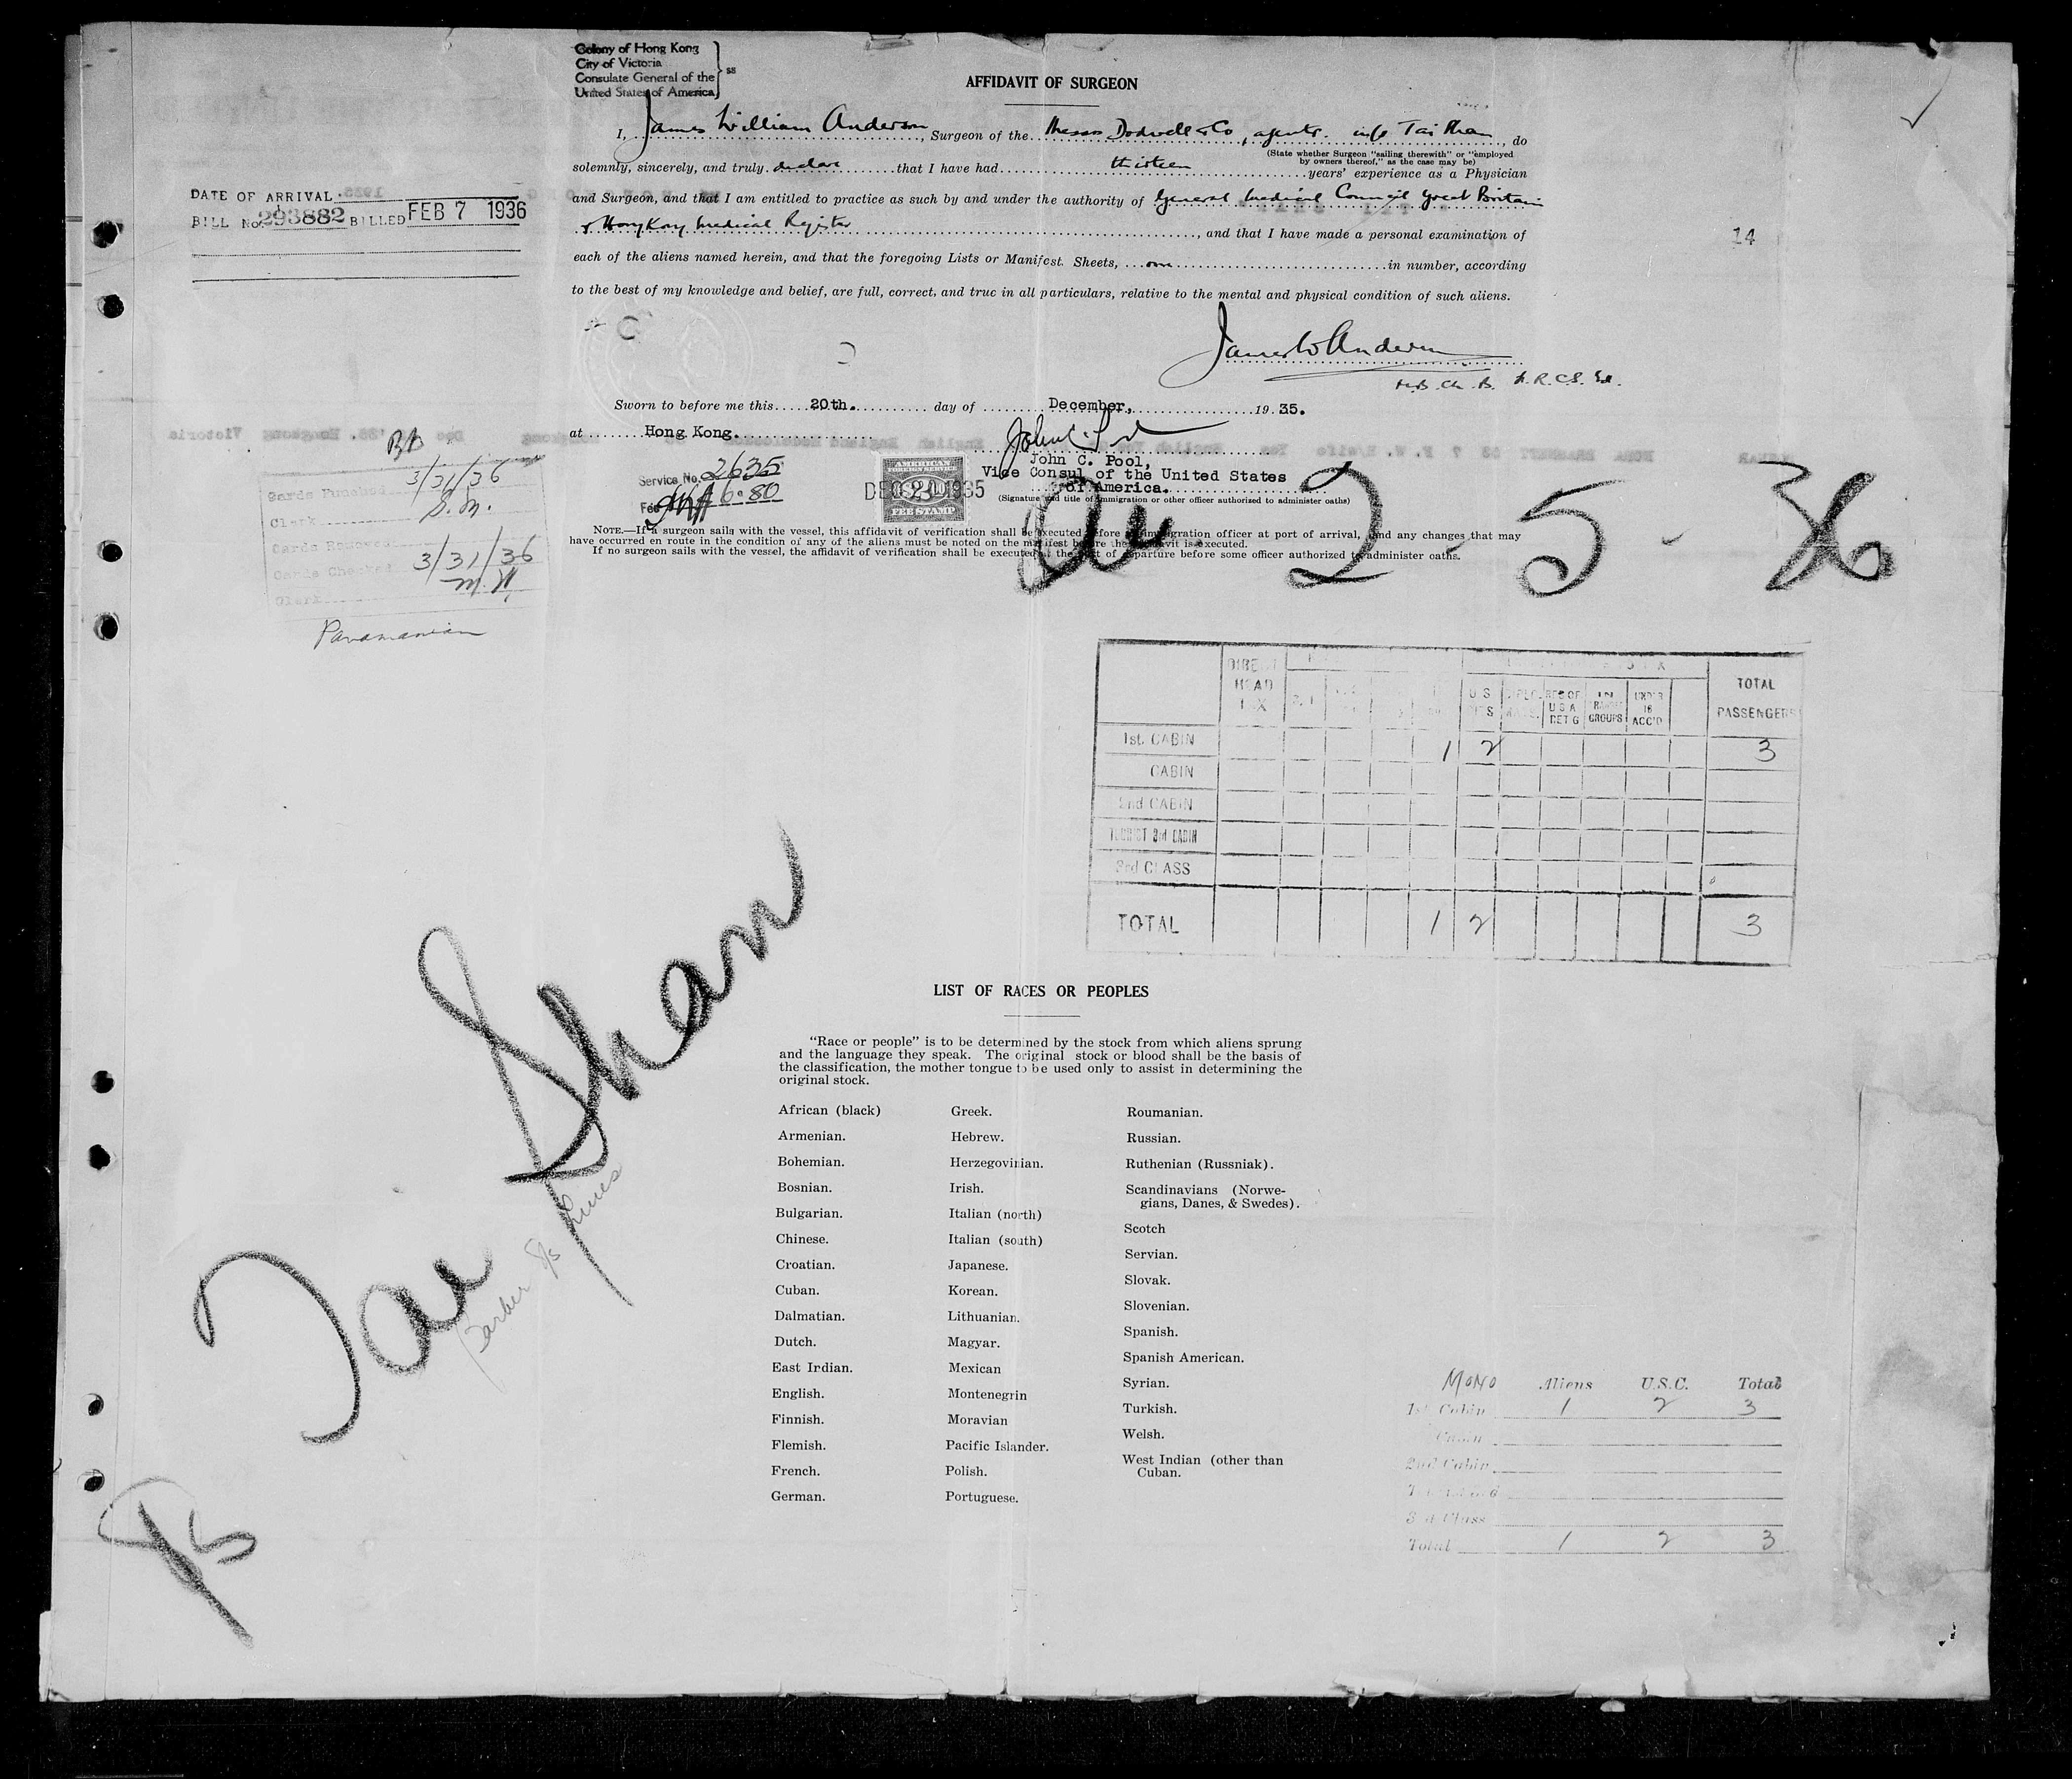 Colony of Hong Kong
City of Victoria
Consulate General of the
United States of America
ss
AFFIDAVIT OF SURGEON
I, James William Anderson, Surgeon of the Messrs Dodwell & Co, agents. Tai Shan, do
(State whether Surgeon "sailing therewith" or "employed
by owners thereof," as the case may be)
solemnly, sincerely, and truly declare that I have had thirteen years' experience as a Physician
and Surgeon, and that I am entitled to practice as such by and under the authority of General Medical Council Great Britain
& HongKong Medical Register, and that I have made a personal examination of
each of the aliens named herein, and that the foregoing Lists or Manifest Sheets, one in number, according
to the best of my knowledge and belief, are full, correct, and true in all particulars, relative to the mental and physical condition of such aliens.
14
DATE OF ARRIVAL
BILL No. 293882 BILLED FEB 7 1936
James W Anderson
M.B. Ch. B. F.R.C.S. Ed.
Sworn to before me this 20th. day of December, 19 35.
at Hong Kong.
John C. Pool,
Vice Consul of the United States
of America.
(Signature and title of immigration or other officer authorized to administer oaths)
Service No. 2635
Fee
AMERICAN
FOREIGN SERVICE
FEE STAMP
DEC 20 1935
NOTE.—If a surgeon sails with the vessel, this affidavit of verification shall be executed before an immigration officer at port of arrival, and any changes that may
have occurred en route in the condition of any of the aliens must be noted on the manifest before the affidavit is executed.
If no surgeon sails with the vessel, the affidavit of verification shall be executed at the port of departure before some officer authorized to administer oaths.
2 - 5 - 36
Cards Punched 3/31/36
Clerk S.M.
Cards Checked 3/31/36
Clerk M.H.
Panamanian
DIRECT HEAD TAX
U S
UNDER 16 ACC'D
TOTAL PASSENGERS
1st. CABIN 1 2 3
CABIN
2nd CABIN
TOURIST 3rd CABIN
3rd CLASS
TOTAL 1 2 3
Tai Shan
Barber S/S Lines
LIST OF RACES OR PEOPLES
"Race or people" is to be determined by the stock from which aliens sprung
and the language they speak. The original stock or blood shall be the basis of
the classification, the mother tongue to be used only to assist in determining the
original stock.
African (black)
Armenian.
Bohemian.
Bosnian.
Bulgarian.
Chinese.
Croatian.
Cuban.
Dalmatian.
Dutch.
East Indian.
English.
Finnish.
Flemish.
French.
German.
Greek.
Hebrew.
Herzegovinian.
Irish.
Italian (north)
Italian (south)
Japanese.
Korean.
Lithuanian.
Magyar.
Mexican
Montenegrin
Moravian
Pacific Islander.
Polish.
Portuguese.
Roumanian.
Russian.
Ruthenian (Russniak).
Scandinavians (Norwe-
gians, Danes, & Swedes).
Scotch
Servian.
Slovak.
Slovenian.
Spanish.
Spanish American.
Syrian.
Turkish.
Welsh.
West Indian (other than
Cuban.
MONO Aliens U.S.C. Total
1st Cabin 1 2 3
Cabin
2nd Cabin
3rd Class
Total 1 2 3